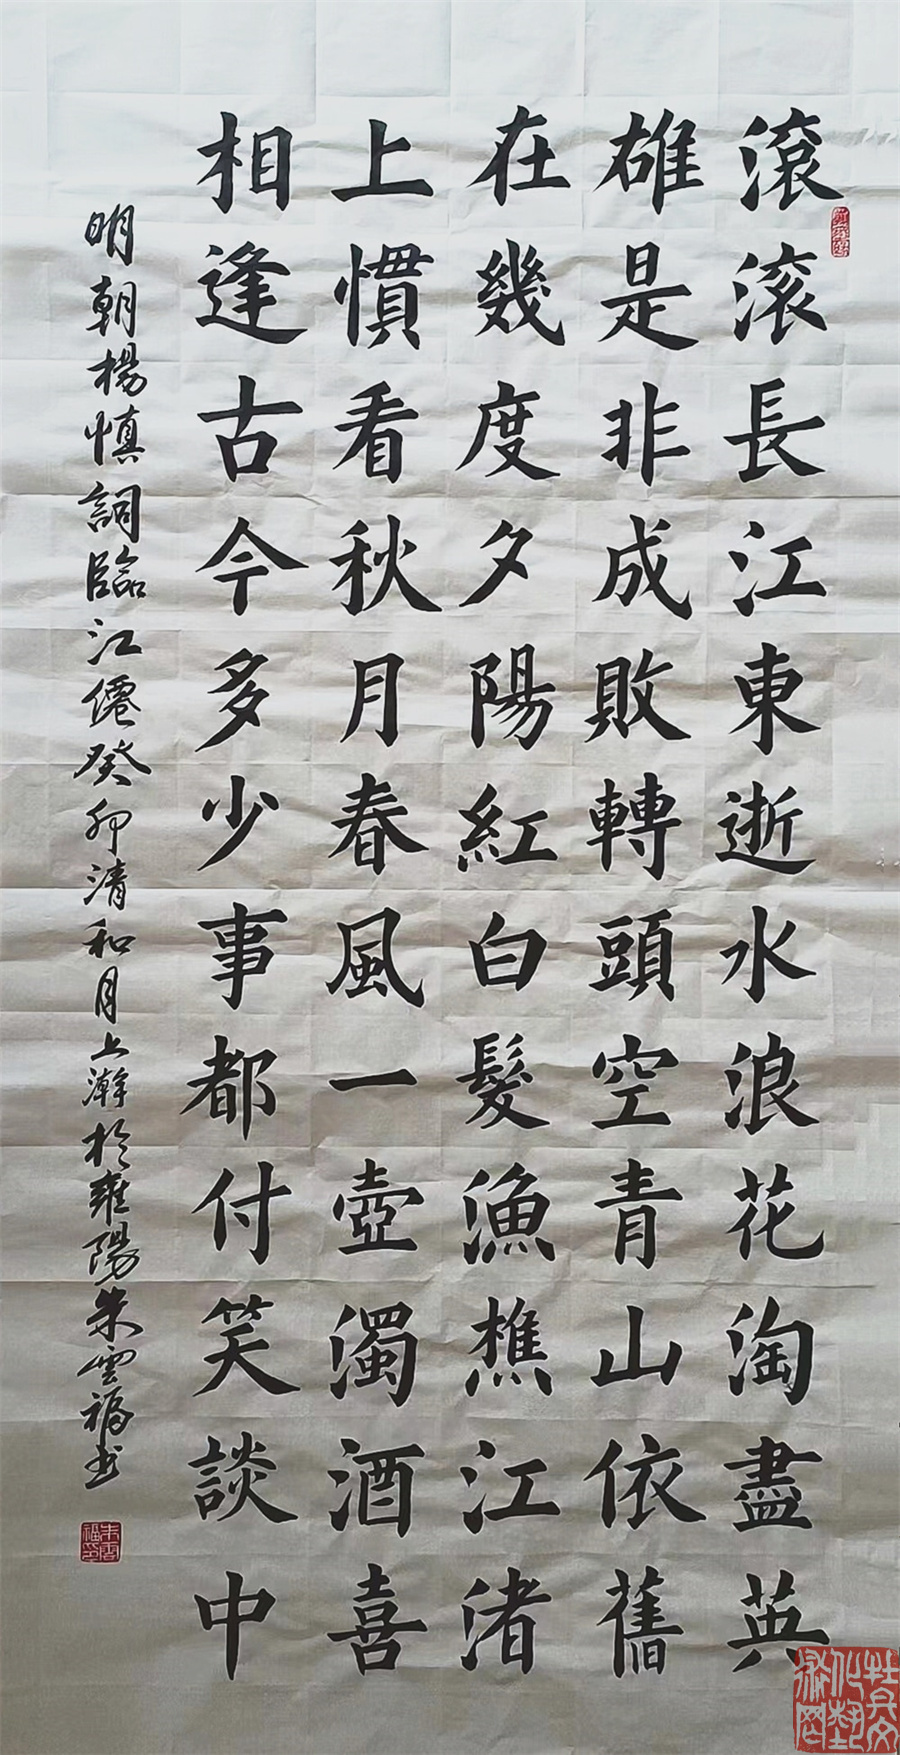 滾滚長江東逝水浪花淘盡英
雄是非成敗轉頭空青山依舊
在幾度夕陽紅白髮漁樵江渚
上慣看秋月春風一壺濁酒喜
相逢古今多少事都付笑談中
明朝楊慎詞臨江僊癸卯清和月上澣於雍陽朱雲福书
朱雲福印